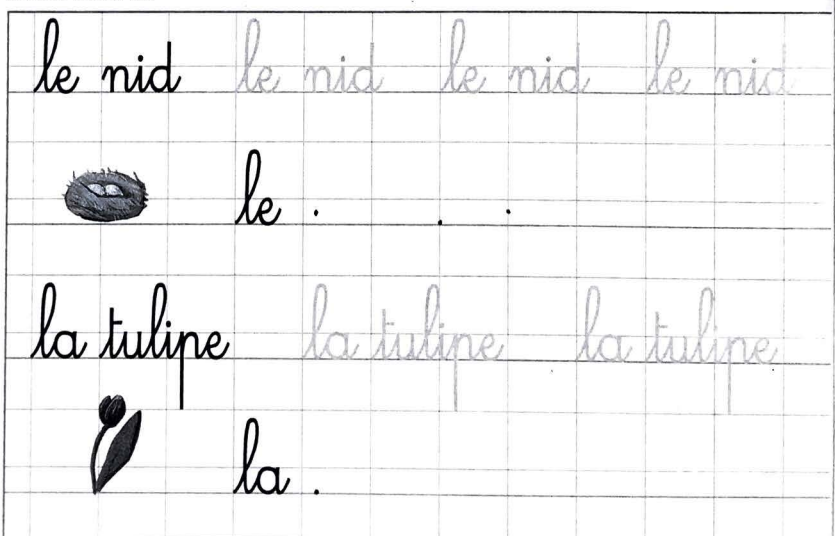 le nid le nid le nid le nid
le . . .
la tulipe la tulipe la tulipe
la .